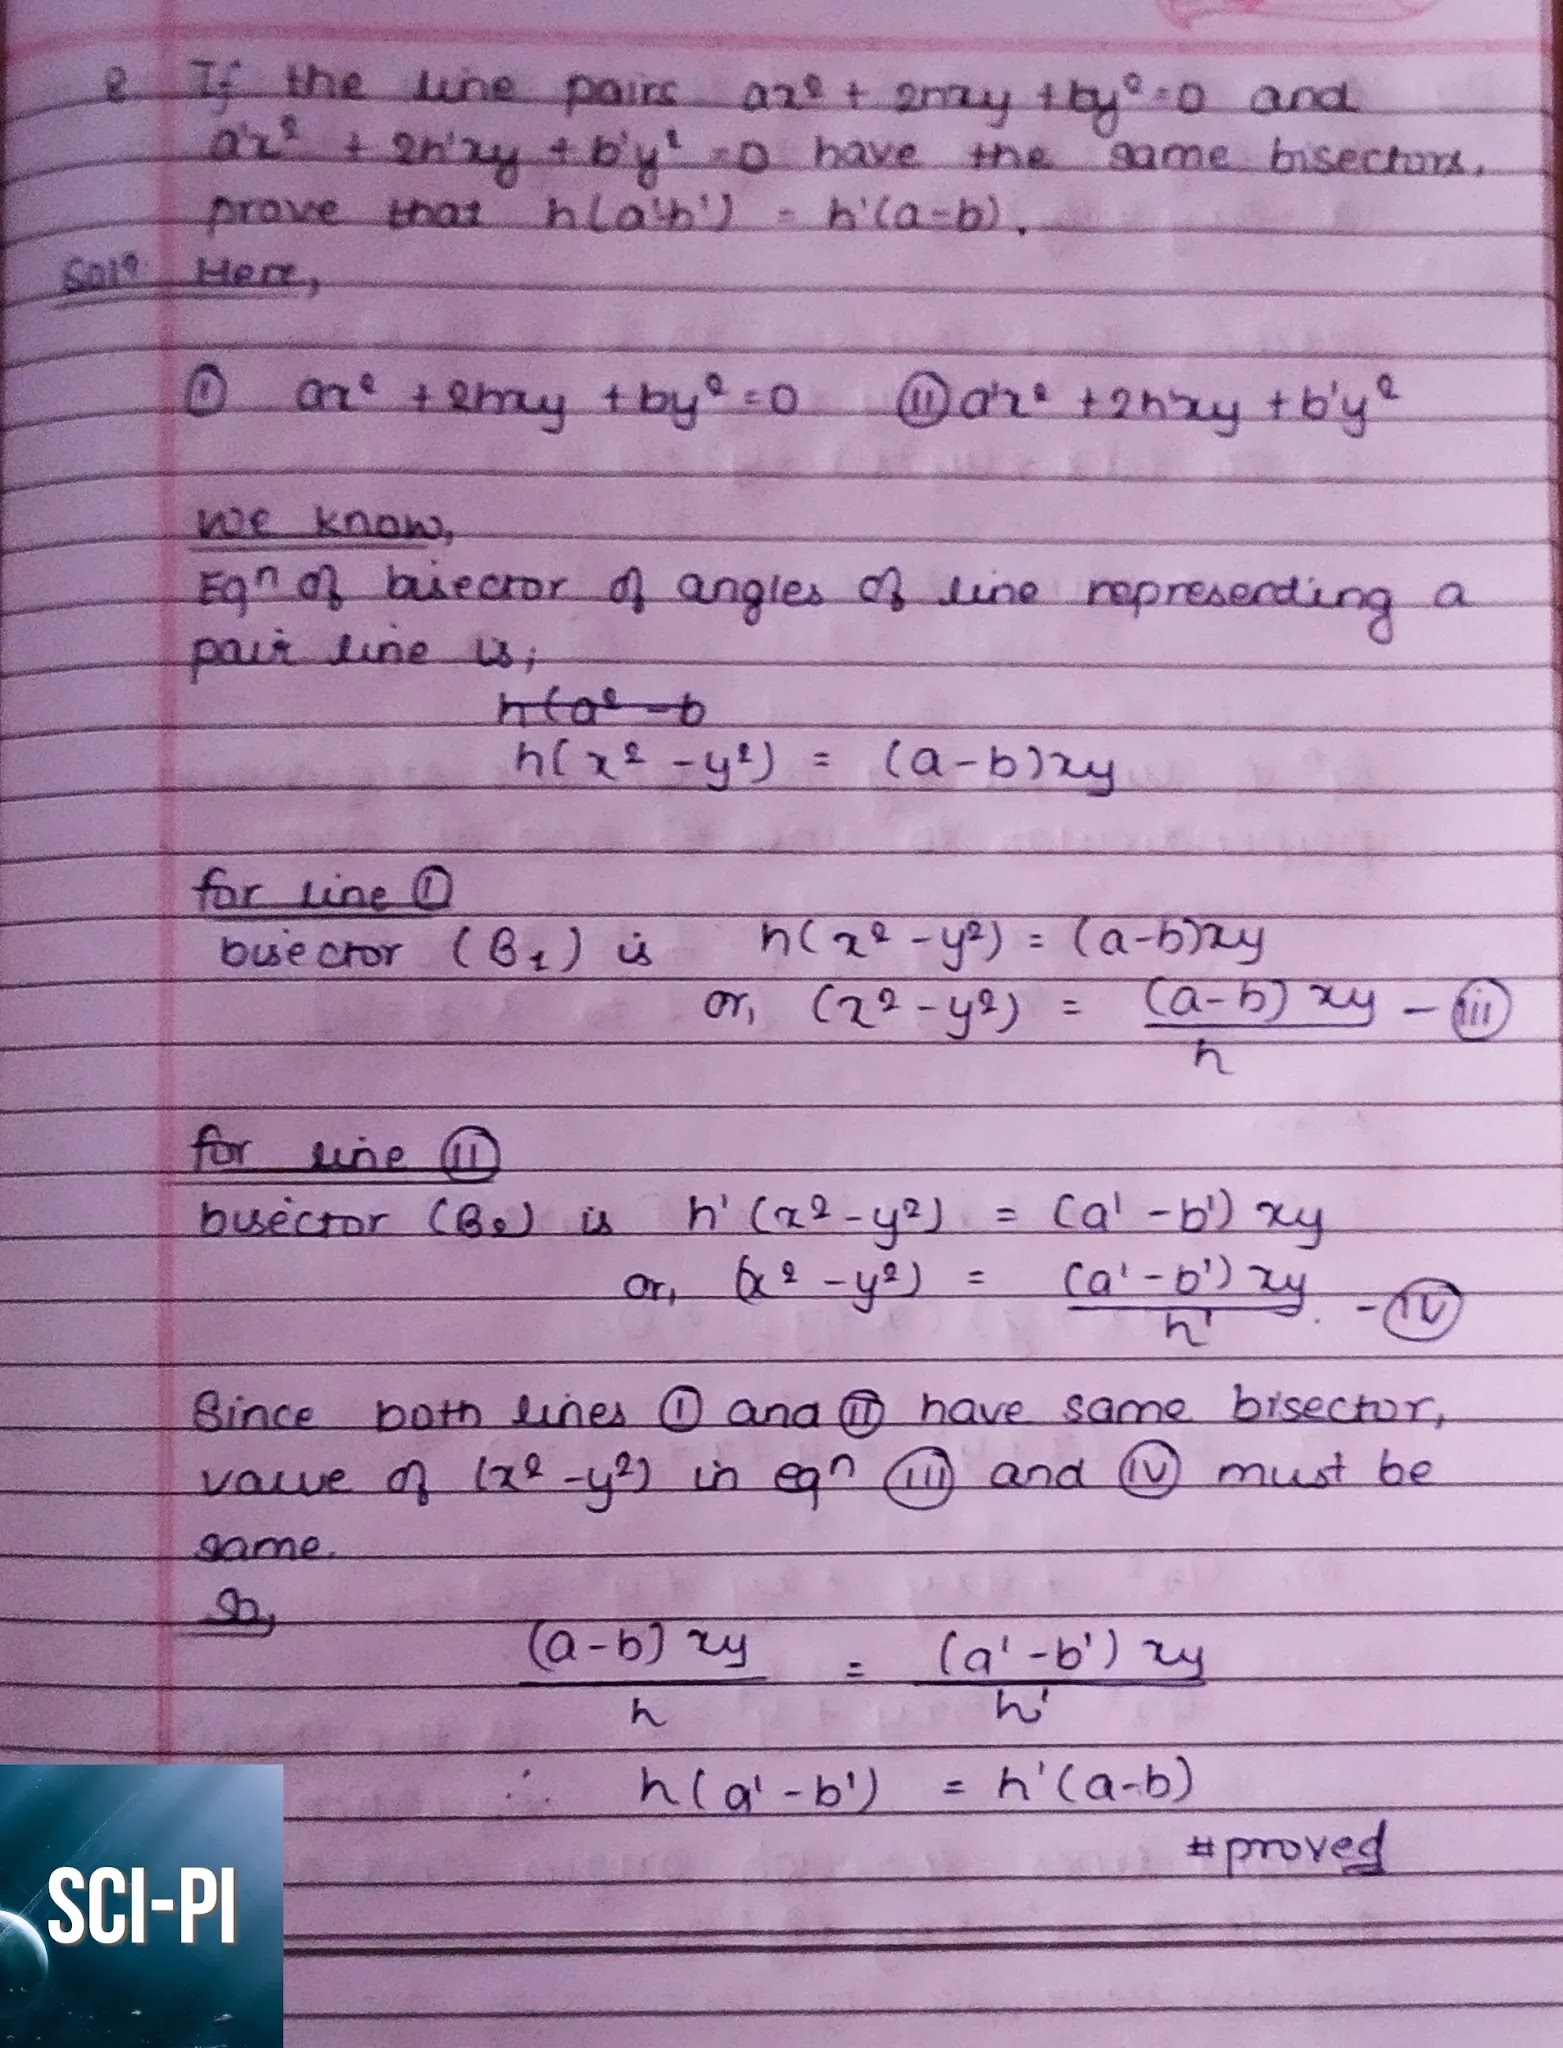 2 If the line pairs ax² + 2hxy + by² = 0 and
a'x² + 2h'xy + b'y² = 0 have the same bisectors,
prove that h(a'-b') = h'(a-b).
Solⁿ. Here,
ⓘ ax² + 2hxy + by² = 0 ⓘⓘ a'x² + 2h'xy + b'y²
We know,
Eqⁿ of bisector of angles of line representing a
pair line is;
h(a² - b
h(x² - y²) = (a-b)xy
for line ⓘ
bisector (B₁) is h(x² - y²) = (a-b)xy
or, (x² - y²) = (a-b) xy / h - (iii)
for line (ii)
bisector (B₂) is h' (x² - y²) = (a' - b') xy
or, (x² - y²) = (a' - b') xy / h' . - (iv)
Since both lines (i) and (ii) have same bisector,
value of (x² - y²) in eqⁿ (iii) and (iv) must be
same.
So,
(a-b) xy / h = (a' - b') xy / h'
∴ h(a' - b') = h'(a-b)
#proved
SCI-PI